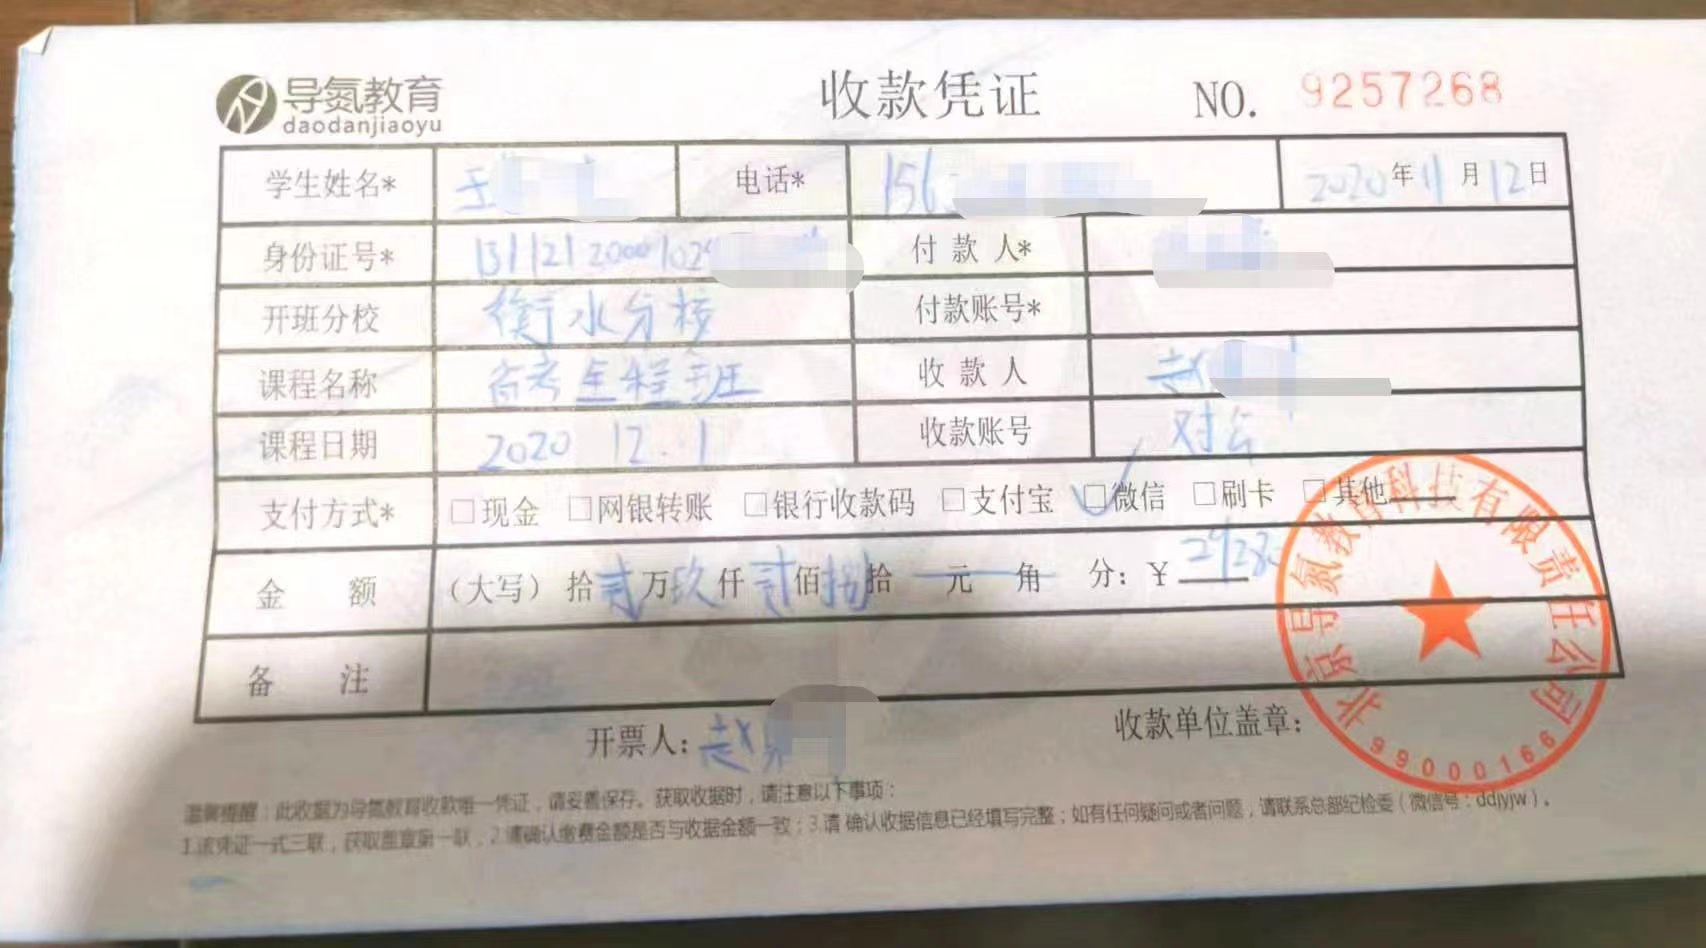 导氮教育
daodanjiaoyu
收款凭证 NO. 9257268
学生姓名* 王 电话* 156 2020年11月12日
身份证号* 131121200010 付款人*
开班分校 衡水分校 付款账号*
课程名称 备考全程班 收款人 赵
课程日期 2020 12.1 收款账号 对公
支付方式* □现金 □网银转账 □银行收款码 □支付宝 □微信 □刷卡 □其他
金额 (大写) 拾贰万玖仟贰佰捌拾元角分:¥
备注
开票人:赵 收款单位盖章:
北京导氮教育科技有限责任公司
99000166
温馨提醒:此收据为导氮教育收款唯一凭证,请妥善保存。获取收据时,请注意以下事项:
1.该凭证一式三联,获取盖章第一联,2.请确认缴费金额是否与收据金额一致;3.请 确认收据信息已经填写完整;如有任何疑问或者问题,请联系总部纪检委(微信号:ddjyjw)。